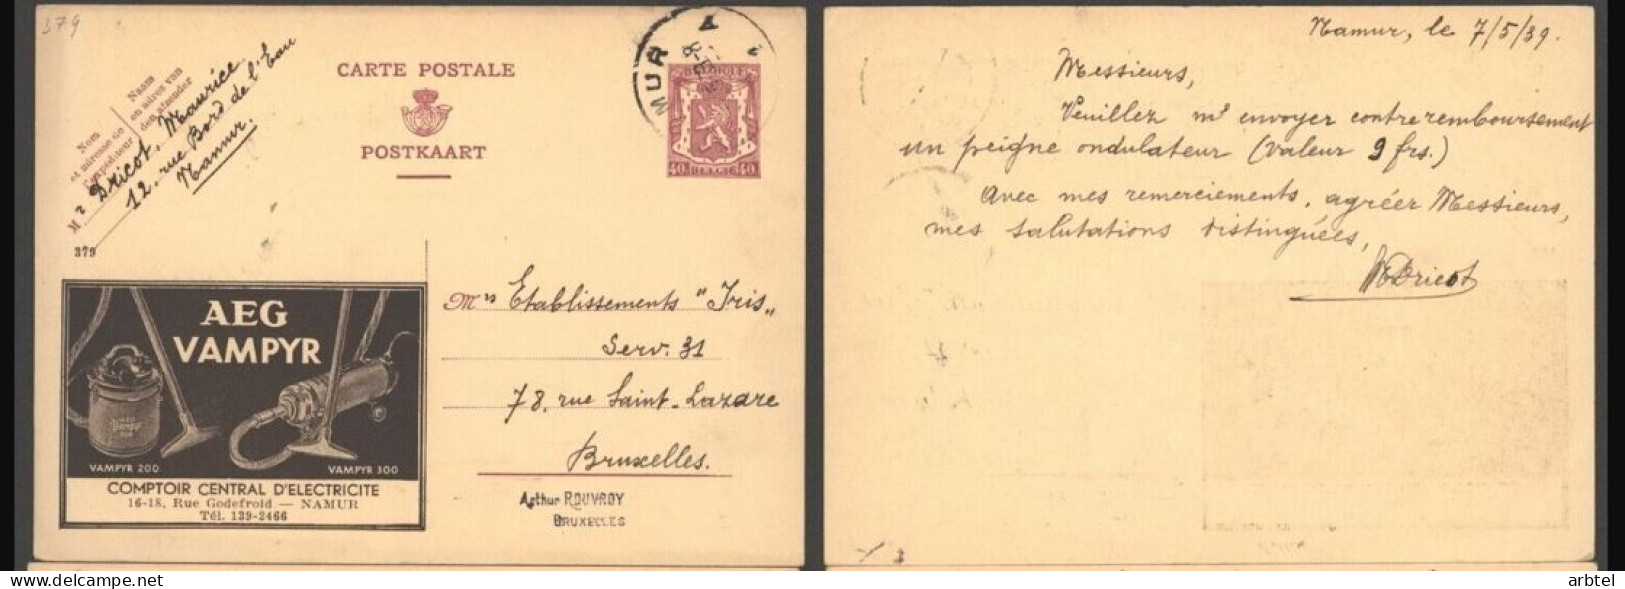 379
CARTE POSTALE
POSTKAART
Nom
et adresse de
l'expéditeur
Naam
en adres van
den afzender
Mr Dricot, Maurice
12, rue Bord de l'Eau
Namur.
379
MUR
BELGIQUE
40 BELGIE 40
AEG
VAMPYR
VAMPYR 200
VAMPYR 300
COMPTOIR CENTRAL D'ELECTRICITE
16-18, Rue Godefroid — NAMUR
Tél. 139-2466
Mrs Etablissements "Iris"
Serv. 31
78, rue Saint-Lazare
Bruxelles.
Arthur ROUVROY
BRUXELLES
Namur, le 7/5/39.
Messieurs,
Veuillez m'envoyer contre remboursement
un peigne ondulateur (valeur 9 frs.)
Avec mes remerciements, agréer Messieurs,
mes salutations distinguées,
MDricot
arbtel